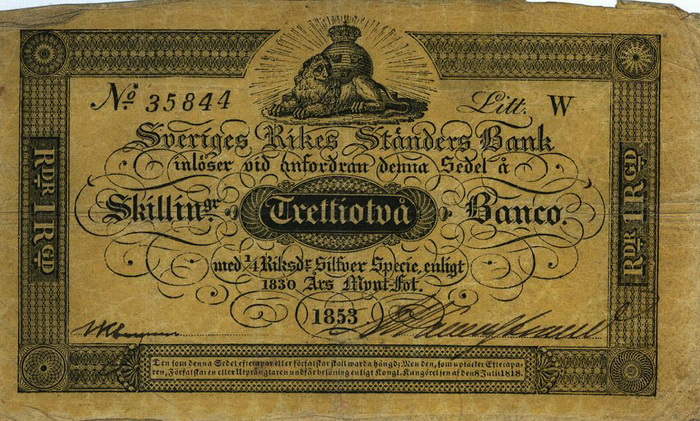 No. 35844 Litt. W
Sveriges Rikes Ständers Bank
inlöser vid anfordran denna Sedel å
Skillingr Trettiotvå Banco.
med 1/4 Riksdr Silfver Specie, enligt
1830 Års Mynt-Fot.
1853
RDR 1 RGD
RDR 1 RGD
Den som denna Sedel efterapar eller förfalskar skall warda hängd; Men den, som uptäcker Efterapa-
ren, Förfalskaren eller Utprånglaren undfår belöning enligt Kongl. Kungörelsen af den 8 Julii 1818.